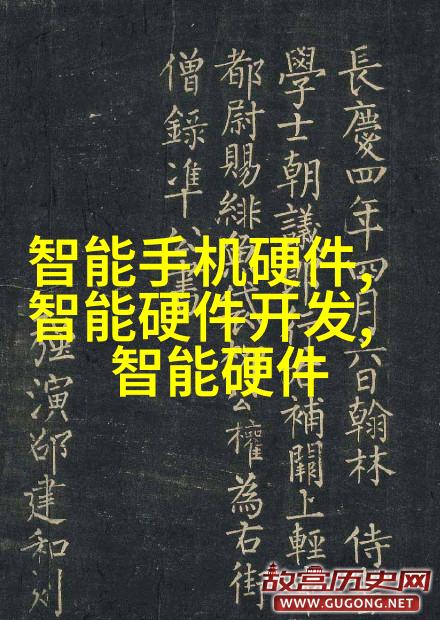 長慶四年四月六日翰林侍
學士朝議補闕上輕
都尉賜緋公權為右街
僧錄准公書
強演邵建和刻
智能手机硬件,
智能硬件开发,
智能硬件
故宫历史网
WWW.GUGONG.NET